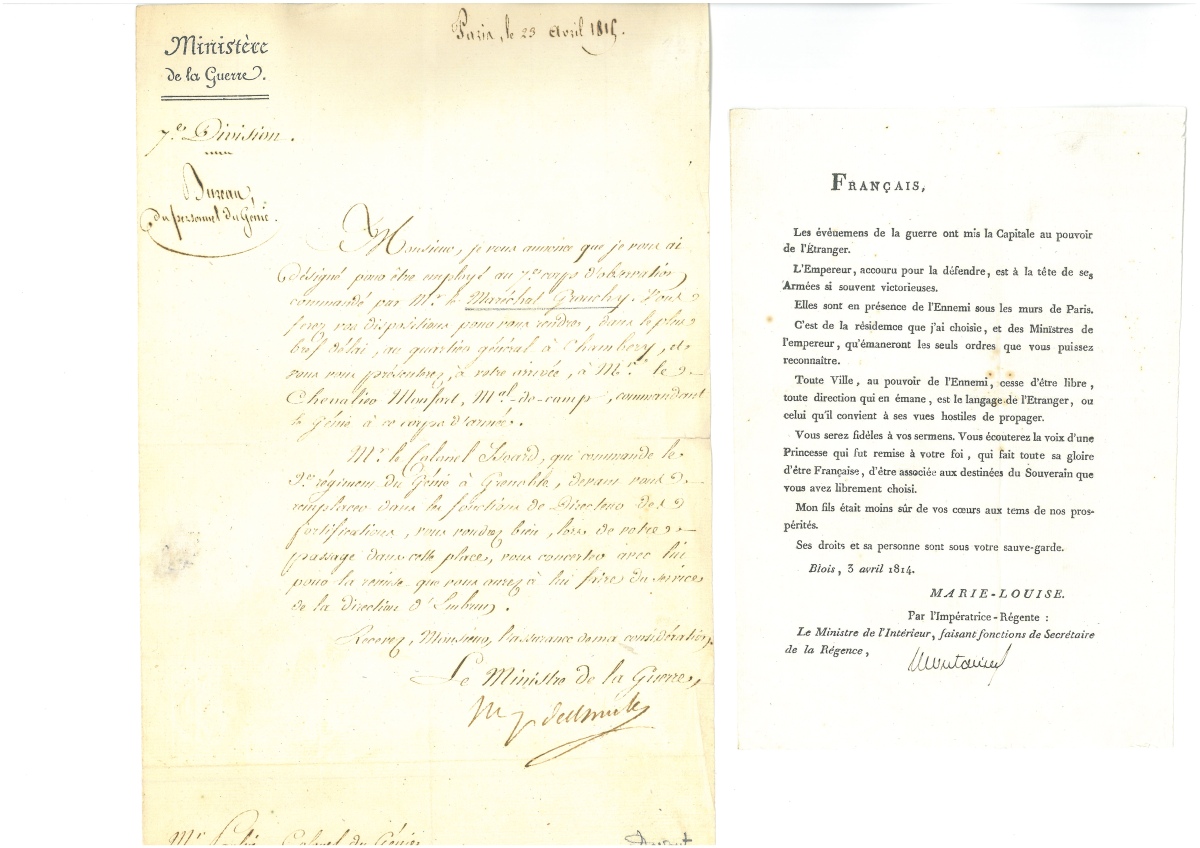 Paris, le 23 avril 1815.
Ministère
de la Guerre.
7e. Division.
Bureau
du personnel du Génie.
Monsieur, je vous annonce que je vous ai
désigné pour être employé au 7e. corps d'observation
commandé par Mr. le Maréchal Grouchy. Vous
ferez vos dispositions pour vous rendre, dans le plus
bref délai, au quartier général à Chambéry, et
vous vous présenterez, à votre arrivée, à Mr. le
Chevalier Monfort, Mal.-de-camp, commandant
le Génie à ce corps d'armée.
Mr. le Colonel Izoard, qui commande le
2e. régiment du Génie à Grenoble, devant vous
remplacer dans les fonctions de Directeur des
fortifications, vous voudrez bien, lors de votre
passage dans cette place, vous concerter avec lui
pour la remise que vous aurez à lui faire du service
de la direction d'Embrun.
Recevez, Monsieur, l'assurance de ma considération,
Le Ministre de la Guerre,
Mr. Colonel du Génie
FRANÇAIS,
Les évêuemens de la guerre ont mis la Capitale au pouvoir
de l'Étranger.
L'Empereur, accouru pour la défendre, est à la tête de ses
Armées si souvent victorieuses.
Elles sont en présence de l'Ennemi sous les murs de Paris.
C'est de la résidemce que j'ai choisie, et des Ministres de
l'empereur, qu'émaneront les seuls ordres que vous puissez
reconnaître.
Toute Ville, au pouvoir de l'Ennemi, cesse d'être libre,
toute direction qui en émane, est le langage de l'Etranger, ou
celui qu'il convient à ses vues hostiles de propager.
Vous serez fidèles à vos sermens. Vous écouterez la voix d'une
Princesse qui fut remise à votre foi, qui fait toute sa gloire
d'être Française, d'être associée aux destinées du Souverain que
vous avez librement choisi.
Mon fils était moins sûr de vos cœurs aux tems de nos pros-
pérités.
Ses droits et sa personne sont sous votre sauve-garde.
Blois, 3 avril 1814.
MARIE-LOUISE.
Par l'Impératrice-Régente :
Le Ministre de l'Intérieur, faisant fonctions de Secrétaire
de la Régence,